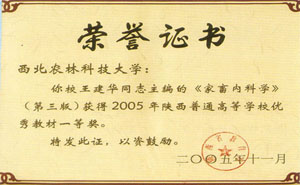 荣誉证书
西北农林科技大学：
你校王建华同志主编的《家畜内科学》
（第三版）获得2005年陕西普通高等学校优
秀教材一等奖。
特发此证，以资鼓励。
二〇〇五年十一月